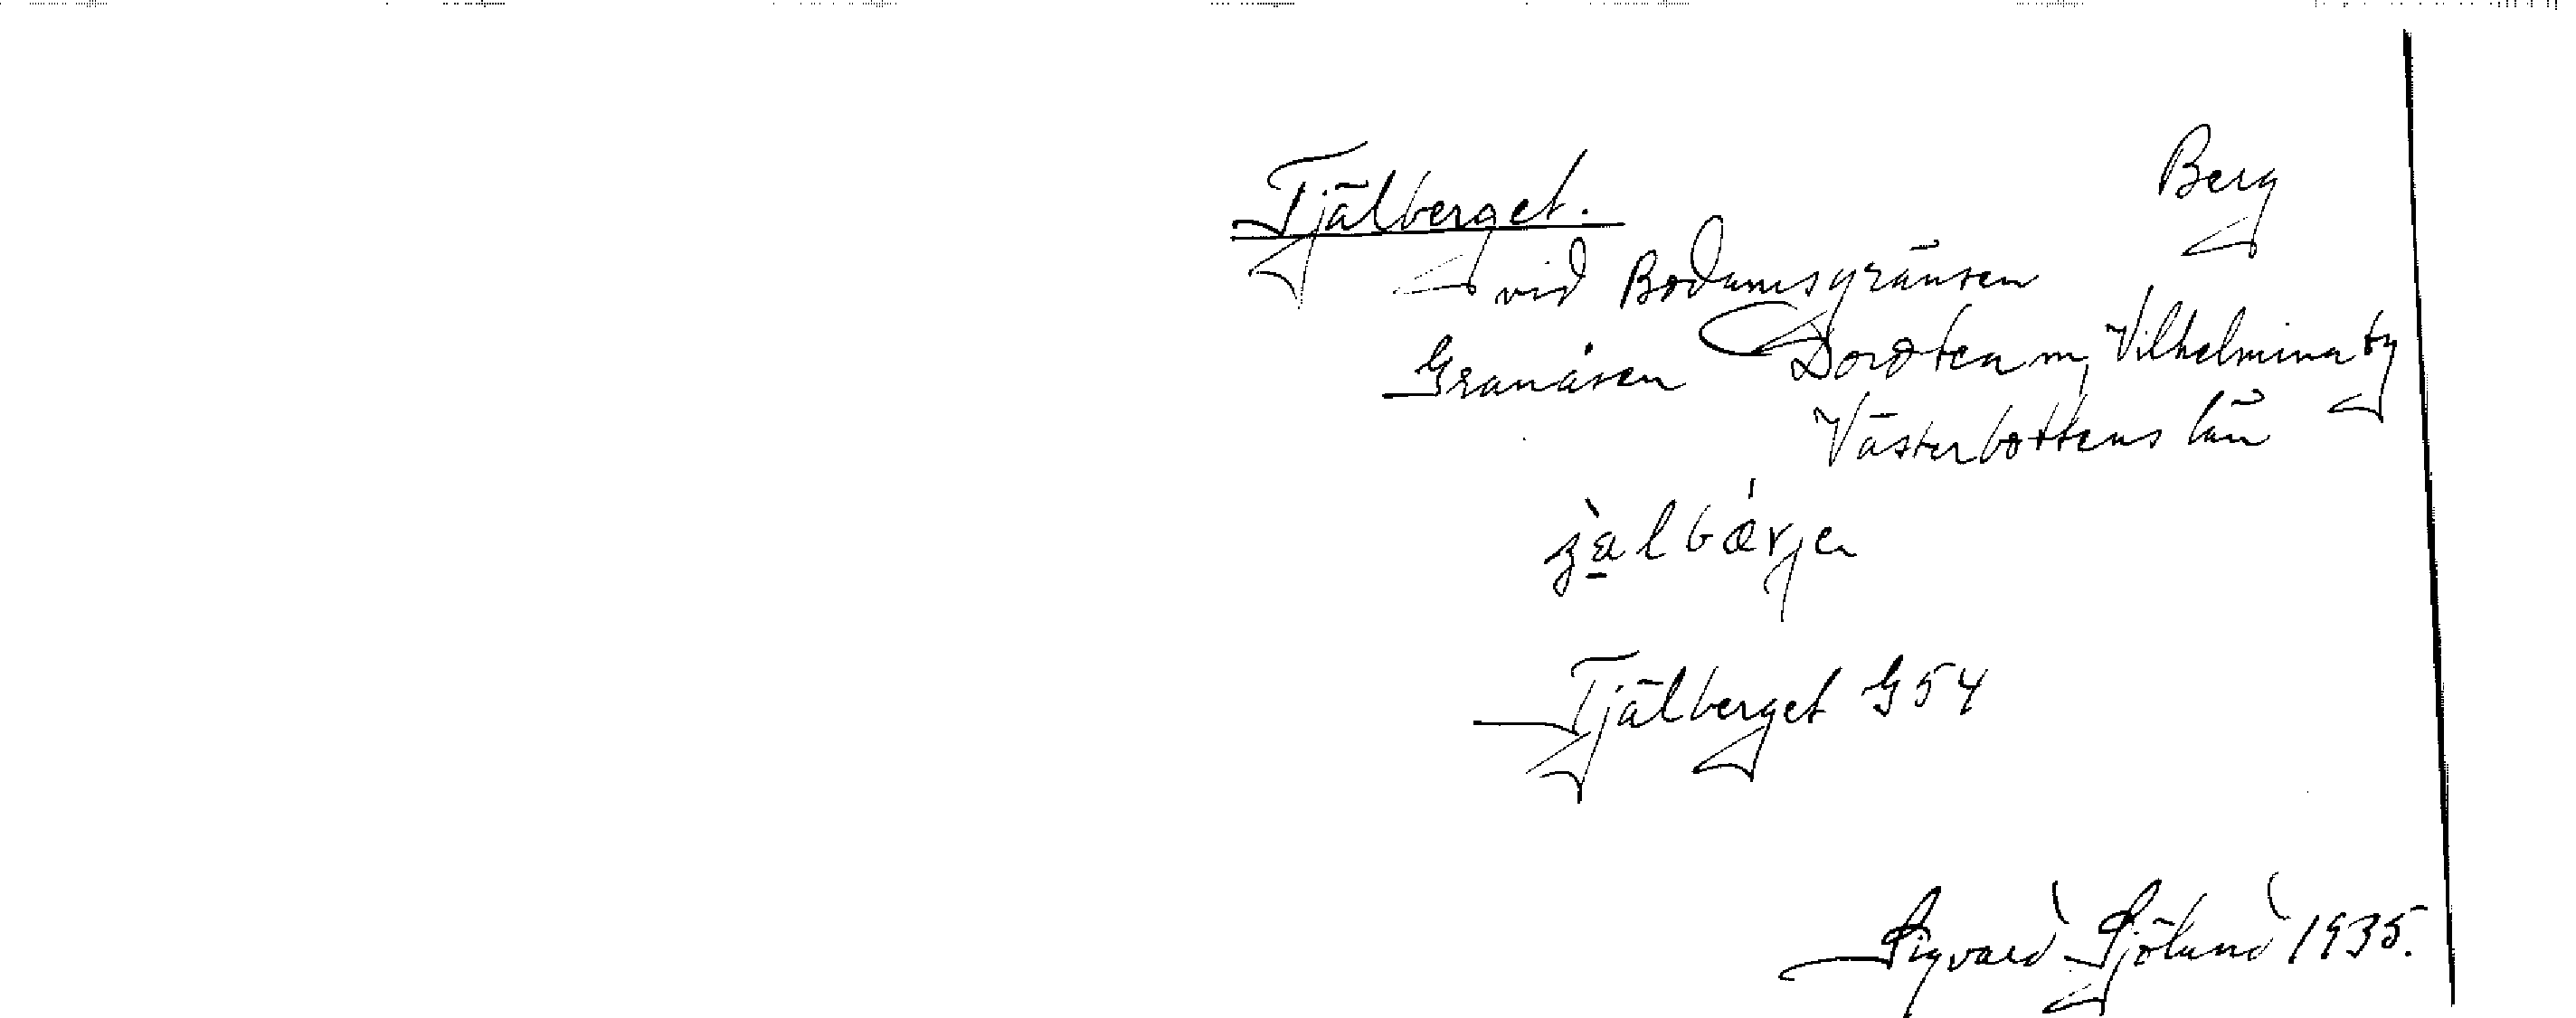 Tjälberget. Berg
vid Bodumsgränsen
Granåsen Dorotea m, Vilhelmina tg
Västerbottens län
Tjälberget G54
Sigvard Sjölund 1935.